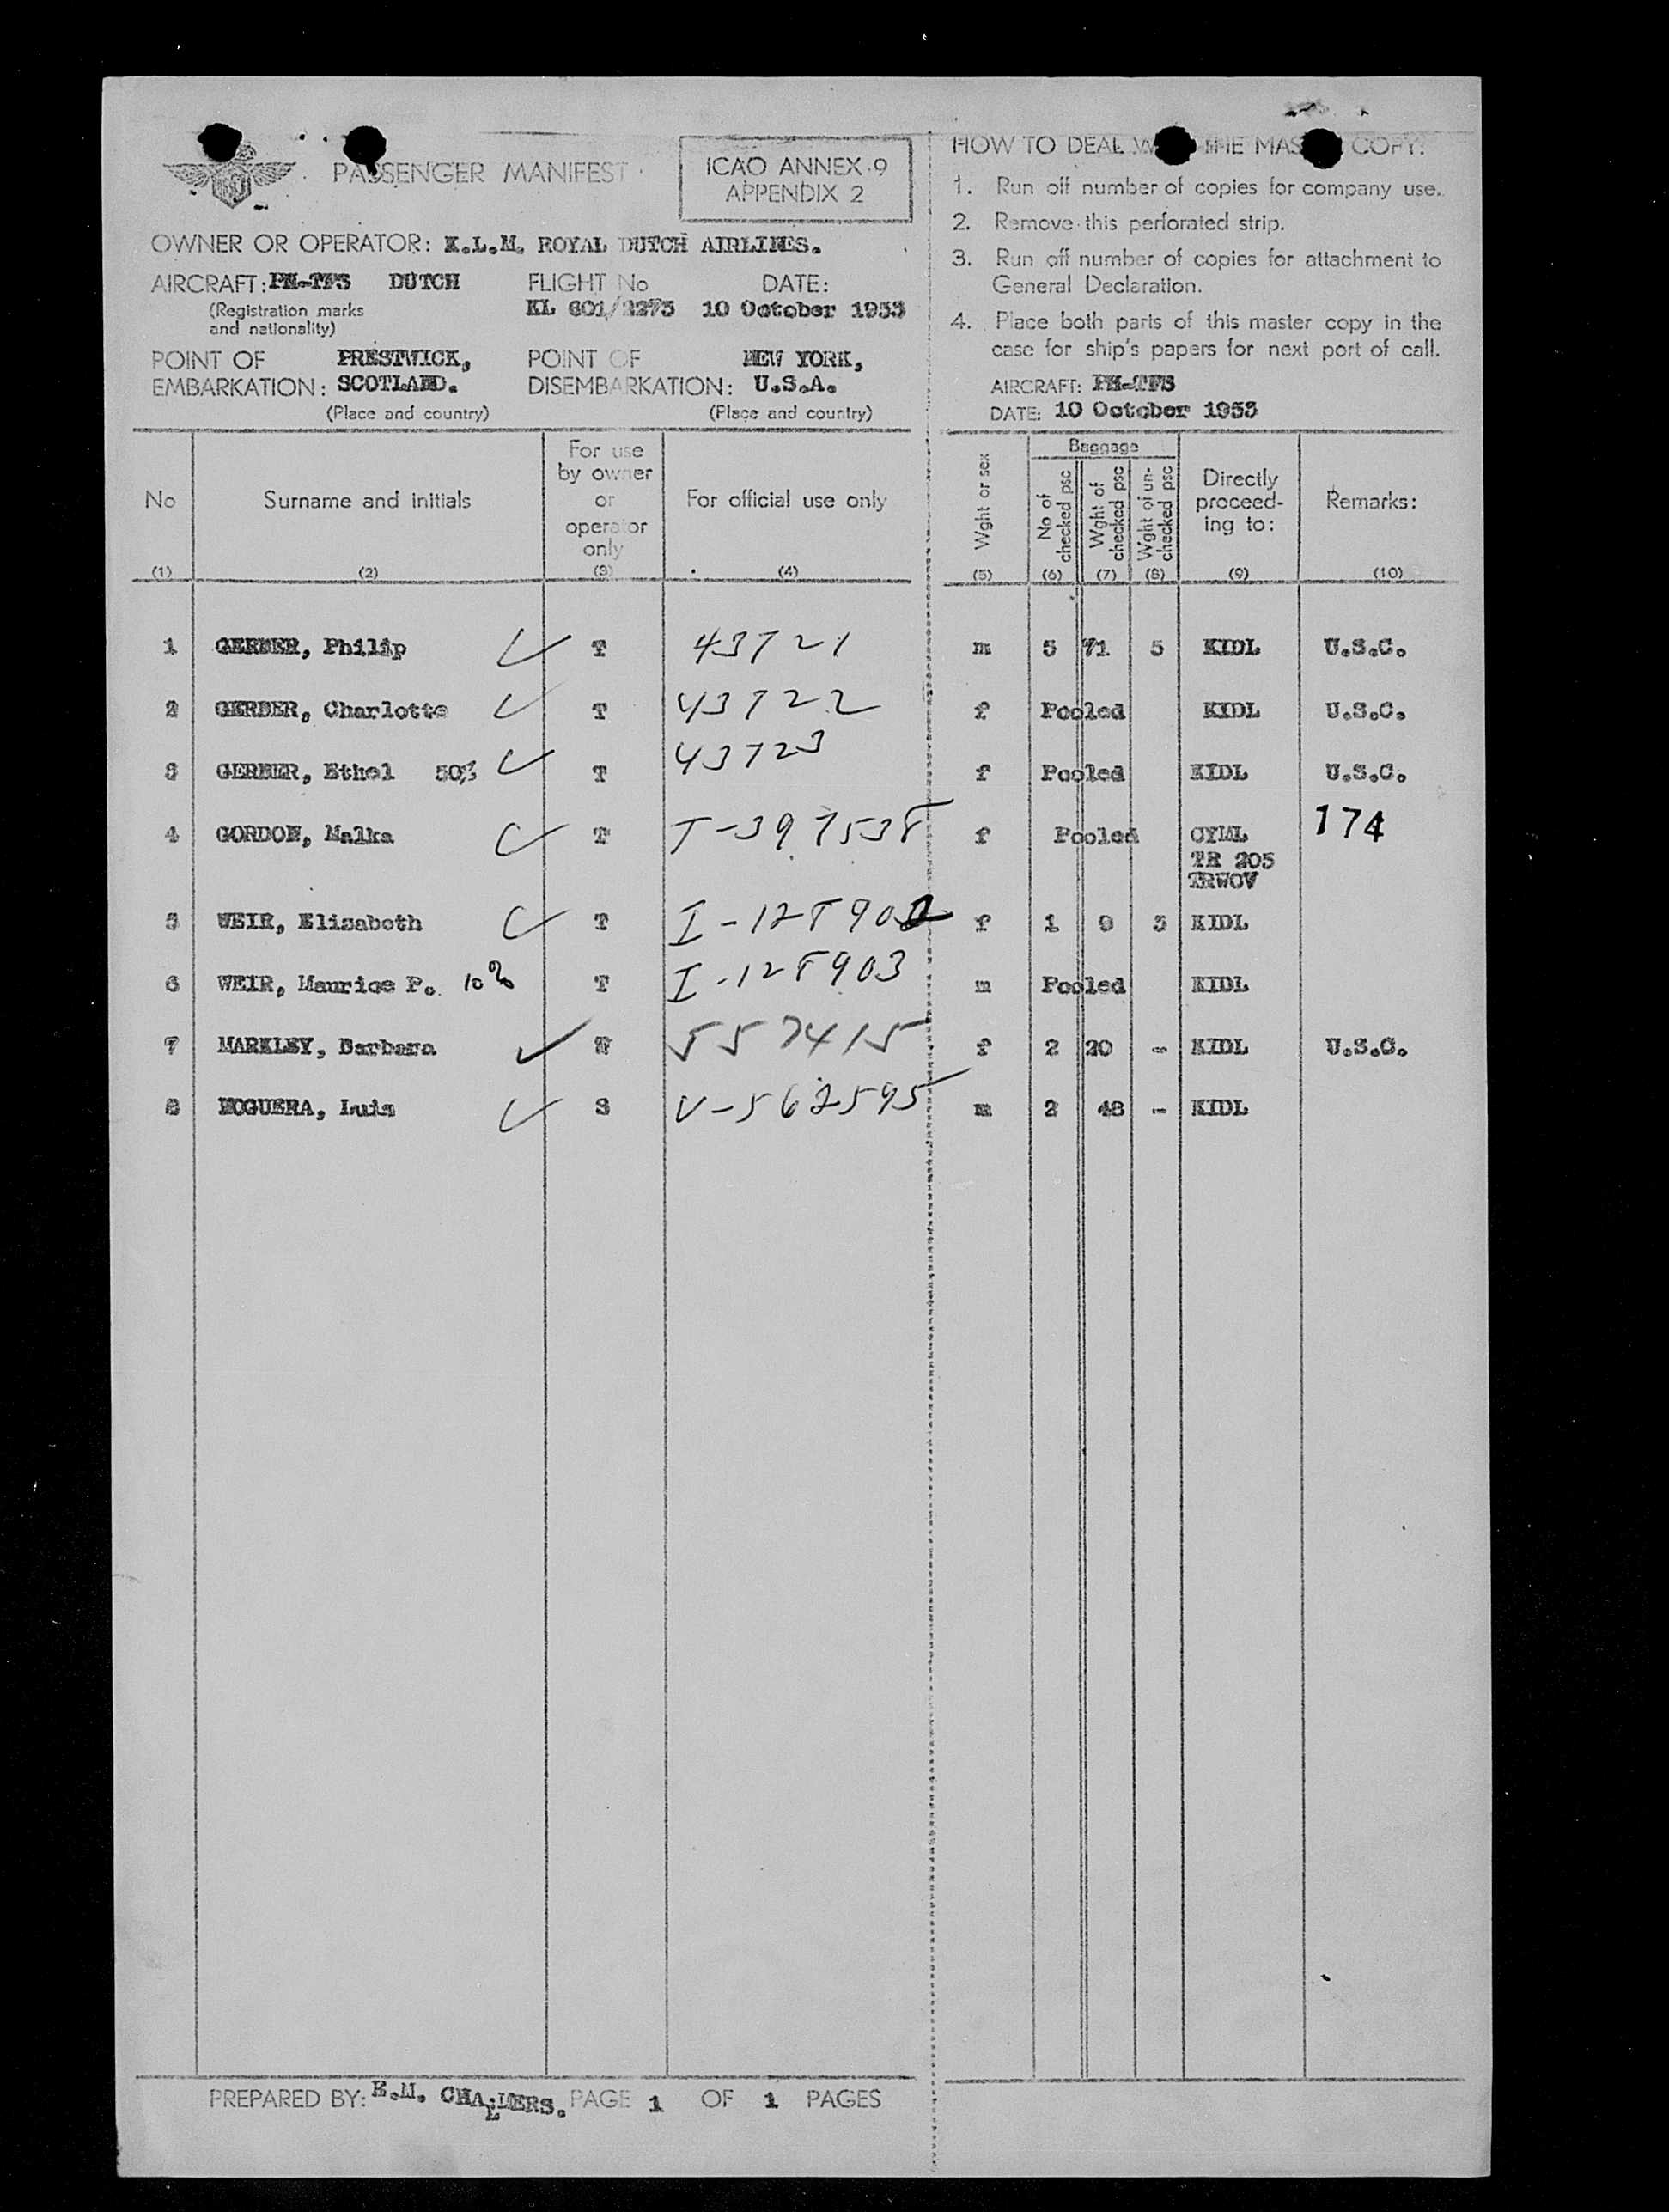 PASSENGER MANIFEST
ICAO ANNEX 9
APPENDIX 2
OWNER OR OPERATOR: K.L.M. ROYAL DUTCH AIRLINES.
AIRCRAFT: PH-TFS DUTCH FLIGHT No DATE:
(Registration marks and nationality) KL 601/2273 10 October 1953
POINT OF EMBARKATION: PRESTWICK, SCOTLAND. POINT OF DISEMBARKATION: NEW YORK, U.S.A.
(Place and country) (Place and country)
HOW TO DEAL THE COPY:
1. Run off number of copies for company use.
2. Remove this perforated strip.
3. Run off number of copies for attachment to
General Declaration.
4. Place both parts of this master copy in the
case for ship's papers for next port of call.
AIRCRAFT: PH-TFS
DATE: 10 October 1953
No Surname and initials For use by owner or operator only For official use only Wght or sex Baggage No of checked psc Wght of checked psc Wght of un-checked psc Directly proceed-ing to: Remarks:
(1) (2) (3) (4) (5) (6) (7) (8) (9) (10)
1 GERBER, Philip T 43721 m 5 71 5 KIDL U.S.C.
2 GERBER, Charlotte T 43722 f Pooled KIDL U.S.C.
3 GERBER, Ethel 50% T 43723 f Pooled KIDL U.S.C.
4 GORDON, Malka T T-397538 f Pooled CYUL 174
TR 205
TRWOV
5 WEIR, Elizabeth T I-128902 f 1 9 3 KIDL
6 WEIR, Maurice P. 10% T I-128903 m Pooled KIDL
7 MARKLEY, Barbara 557415 f 2 20 - KIDL U.S.C.
8 NOGUERA, Luis S V-562595 m 2 48 - KIDL
PREPARED BY: E.M. CHALMERS. PAGE 1 OF 1 PAGES